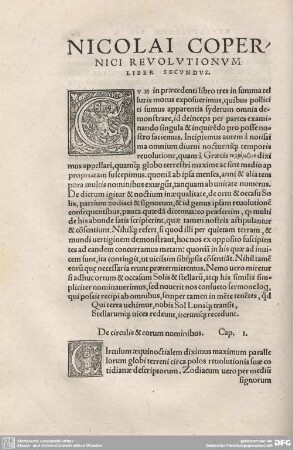 NICOLAI COPER-
NICI REVOLVTIONVM
LIBER SECVNDVS.
CVm in præcedenti libro tres in summa tel
luris motus exposuerimus, quibus polliciti
sumus apparentia syderum omnia de-
monstrare, id deinceps per partes examinando
singula & inquirēdo pro posse no-
stro faciemus. Incipiemus autem à notissi-
ma omnium diurni nocturniq́; temporis
reuolutione, quam à Græcis νυχθήμερον diximus
appellari, quamq́; globo terrestri maxime ac sine medio ap-
propriatam suscepimus, quoniā ab ipsa menses, anni & alia tem
pora multis nominibus exurgūt, tanquam ab unitate numerus.
De dierum igitur & noctium inæqualitate, de ortu & occasu So
lis, partium zodiaci & signorum, & id genus ipsam reuolutionē
consequentibus, pauca quædā dicemus: eo præsertim, quod multi
de his abunde satis scripserint, quæ tamen nostris astipulantur
& cōsentiunt. Nihilq́; refert, si quod illi per quietam terram, &
mundi uertiginem demonstrant, hoc nos ex opposito suscipien
tes ad eandem concurramus metam: quoniā in his quæ ad inuicem
sunt, ita contingit, ut uicissim sibiipsis cōsentiāt. Nihil tamē
eorū quę necessaria erunt prætermittemus. Nemo uero miretur
si adhuc ortum & occasum Solis & stellarū, atq́; his similia sim-
pliciter nominauerimus, sed nouerit nos consueto sermone loq,
qui possit recipi ab omnibus, semper tamen in mēte tenētes, quod
Qui terra uehimur, nobis Sol Lunaq́; transit,
Stellarumq́; uices redeunt, iterumq́; recedunt.
De circulis & eorum nominibus. Cap. I.
CIrculum æquinoctialem diximus maximum paralle
lorum globi terreni circa polos reuolutionis suæ co
tidianæ descriptorum. Zodiacum uero per mediū
signorum